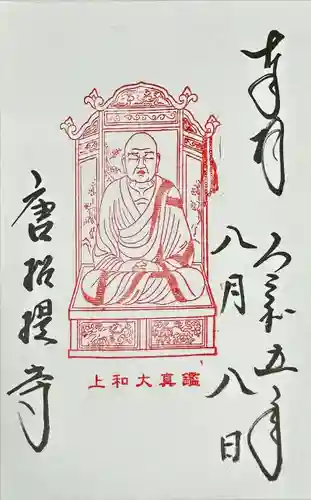 奉拝
令和五年
八月八日
上和大真鑑
唐招提寺